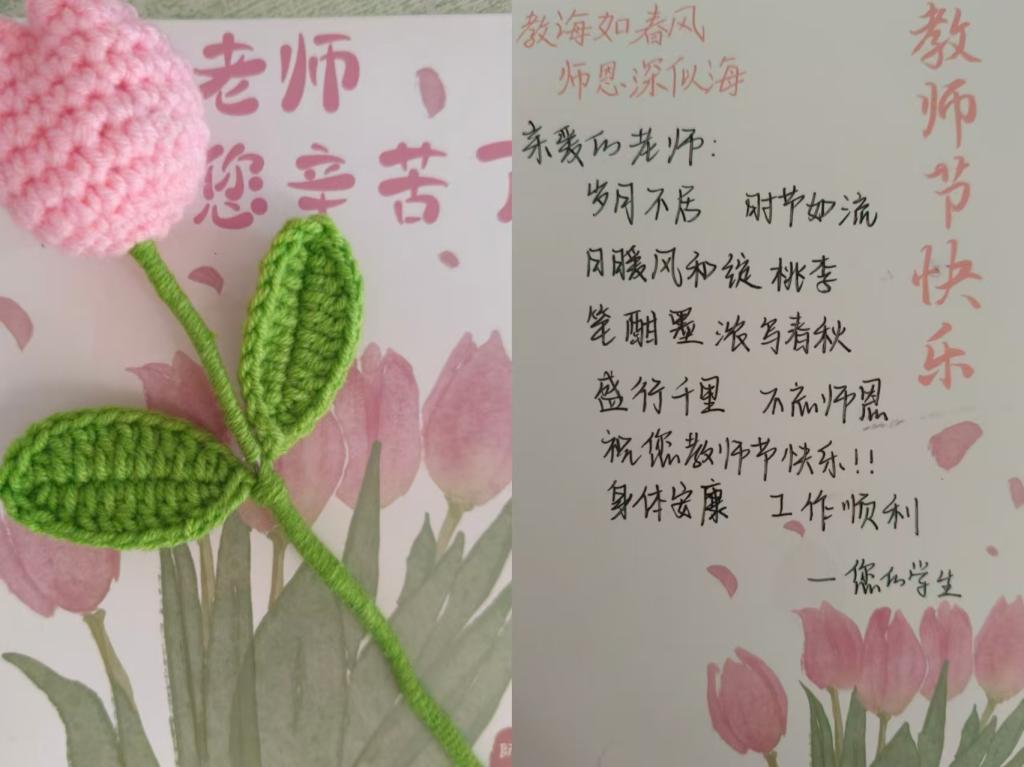 老师
您辛苦了
教海如春风
师恩深似海
亲爱的老师:
岁月不居 时节如流
日暖风和绽桃李
笔酣墨浓写春秋
盛行千里 不忘师恩
祝您教师节快乐!!
身体安康 工作顺利
一您的学生
教师节快乐